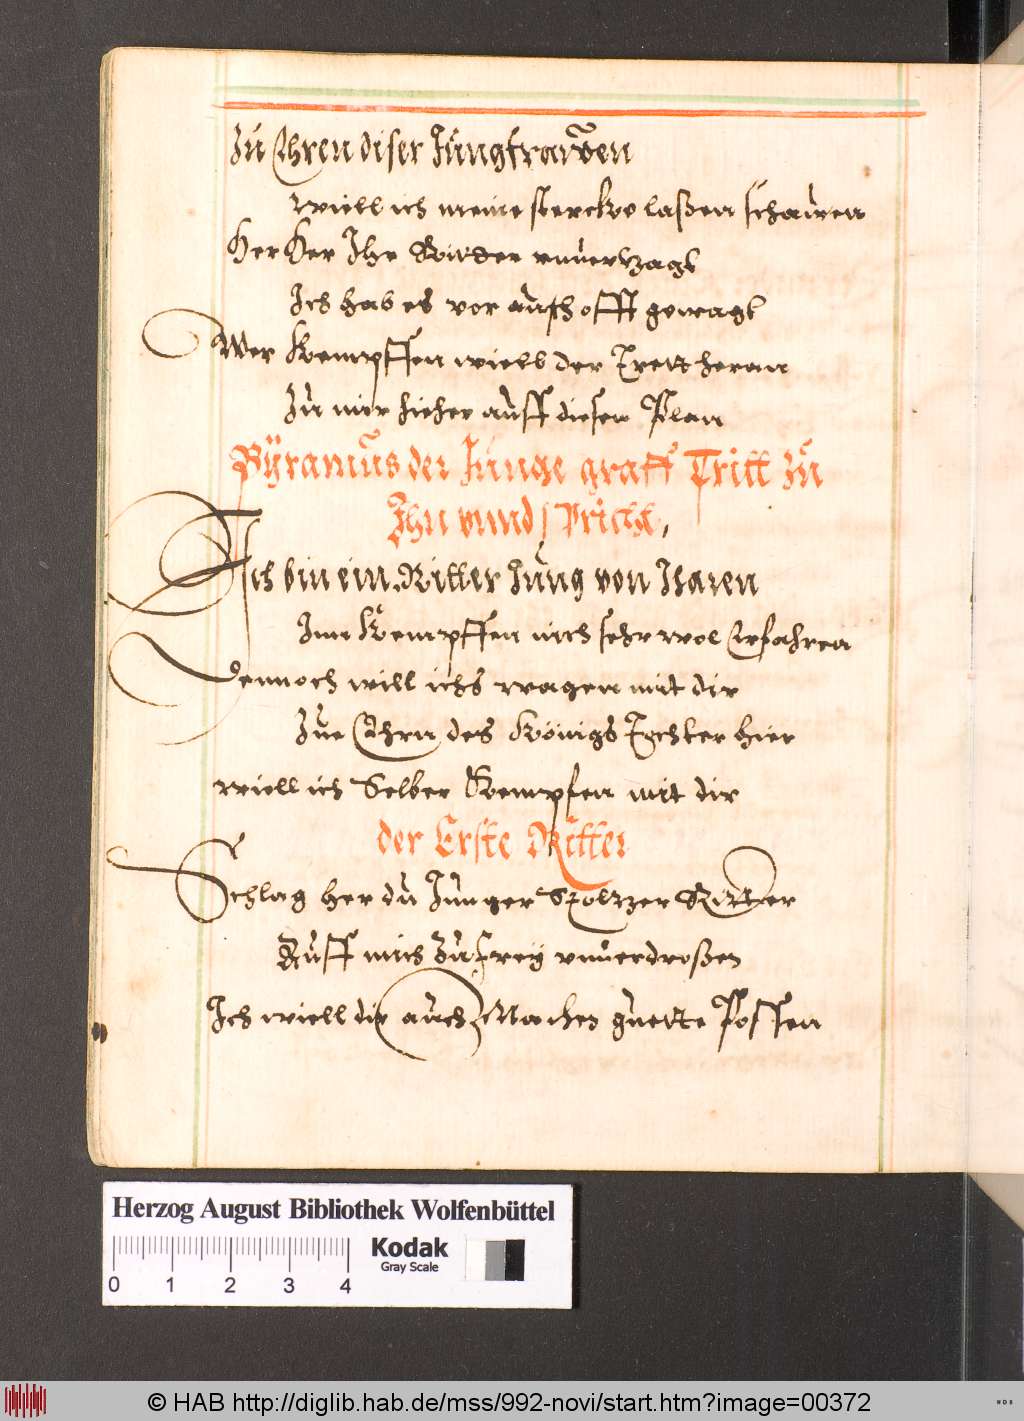 Zu Ehren diser Jungfrauen
wiell ich meine stercke laßen schauwen
Her Her Ihr Ritter unuerzagt
Ich hab es vor auch offt gewagt
Wer Kempffen wiell der Trett heran
Zu mir hieher auff diesen Plan
Pÿramus der Junge graff Tritt Zu
Ihn vnnd spricht,
Ich bin ein Ritter Jung von Jharen
Inn Kempffen nich sehr wol Erfahren
Dennoch will ichs wagen mit dir
Zue Ehrn des Königs Tochter hier
wiell ich Selber Kempfen mit dir
der Erste Ritter
Schlag her du Junger Stoltzer Ritter
Auff mich Zu frey vnuerdroßen
Ich wiell dir auch Machen guette Possen
Herzog August Bibliothek Wolfenbüttel
Kodak
Gray Scale
0 1 2 3 4
© HAB http://diglib.hab.de/mss/992-novi/start.htm?image=00372